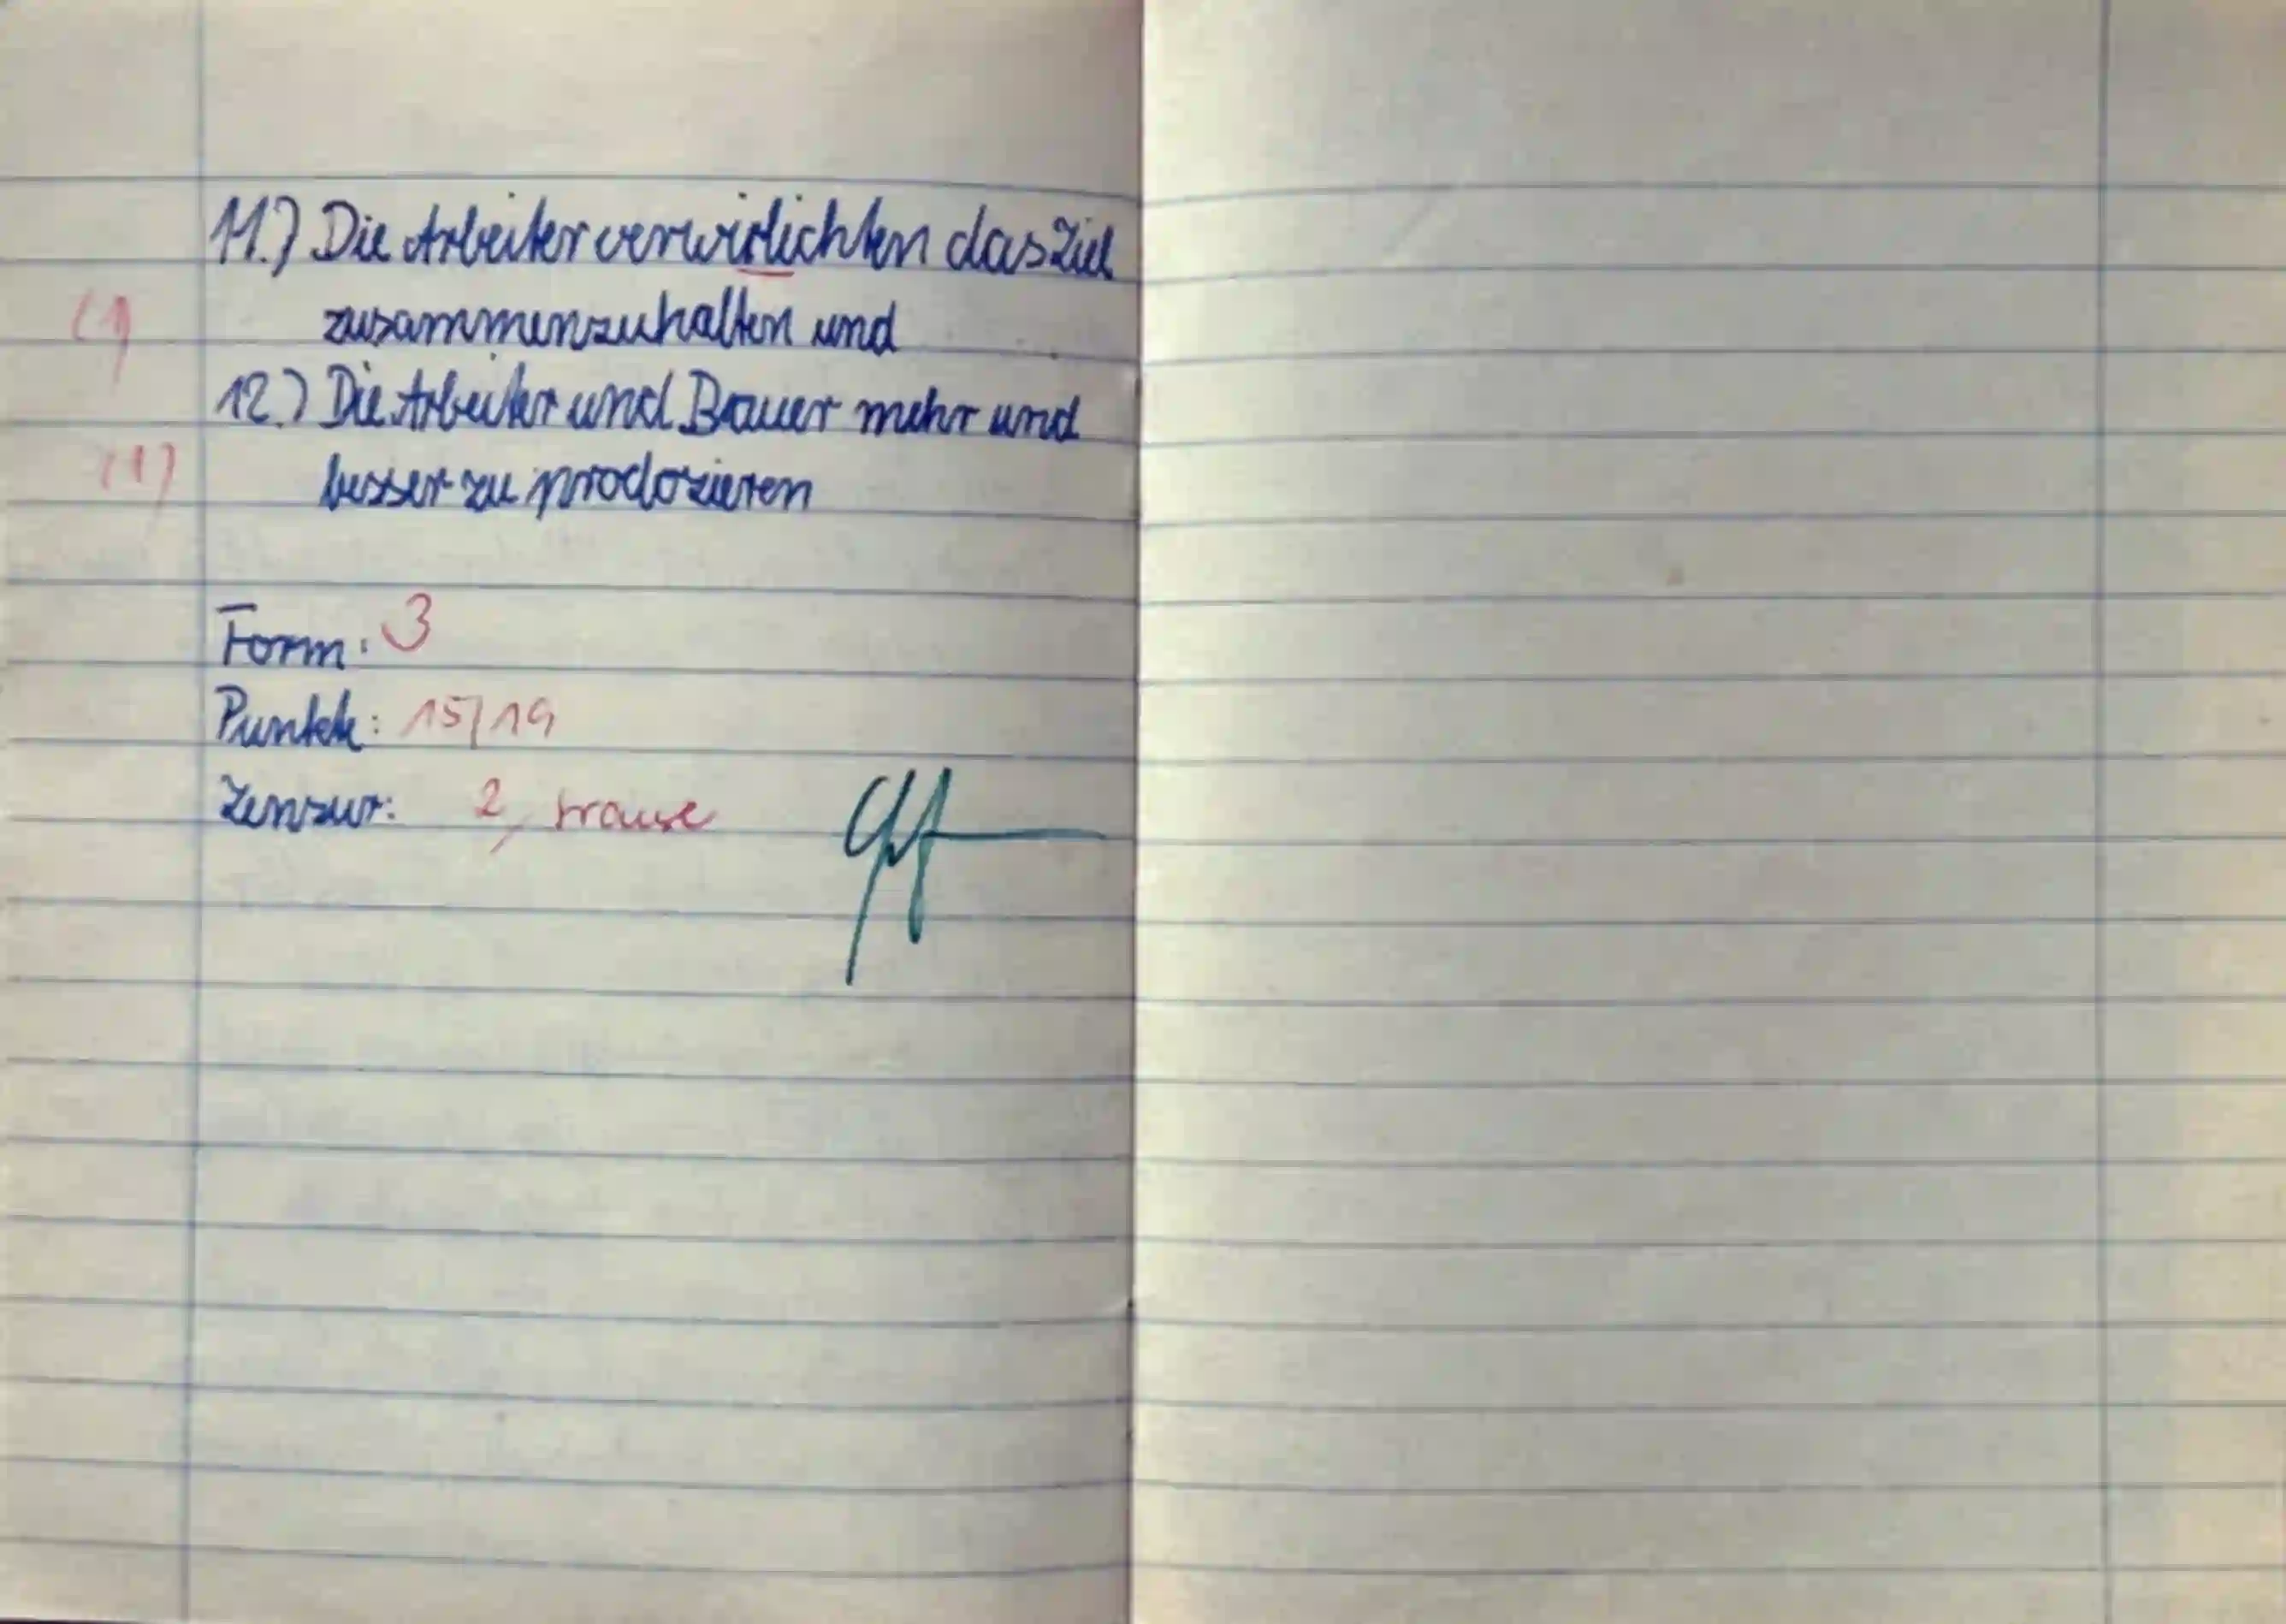 11.) Die Arbeiter verwirlichten das Ziel
(1) zusammenzuhalten und
12.) Die Arbeiter und Bauer mehr und
(1) besser zu prodozieren
Form: 3
Punkte: 15/19
Zensur: 2,